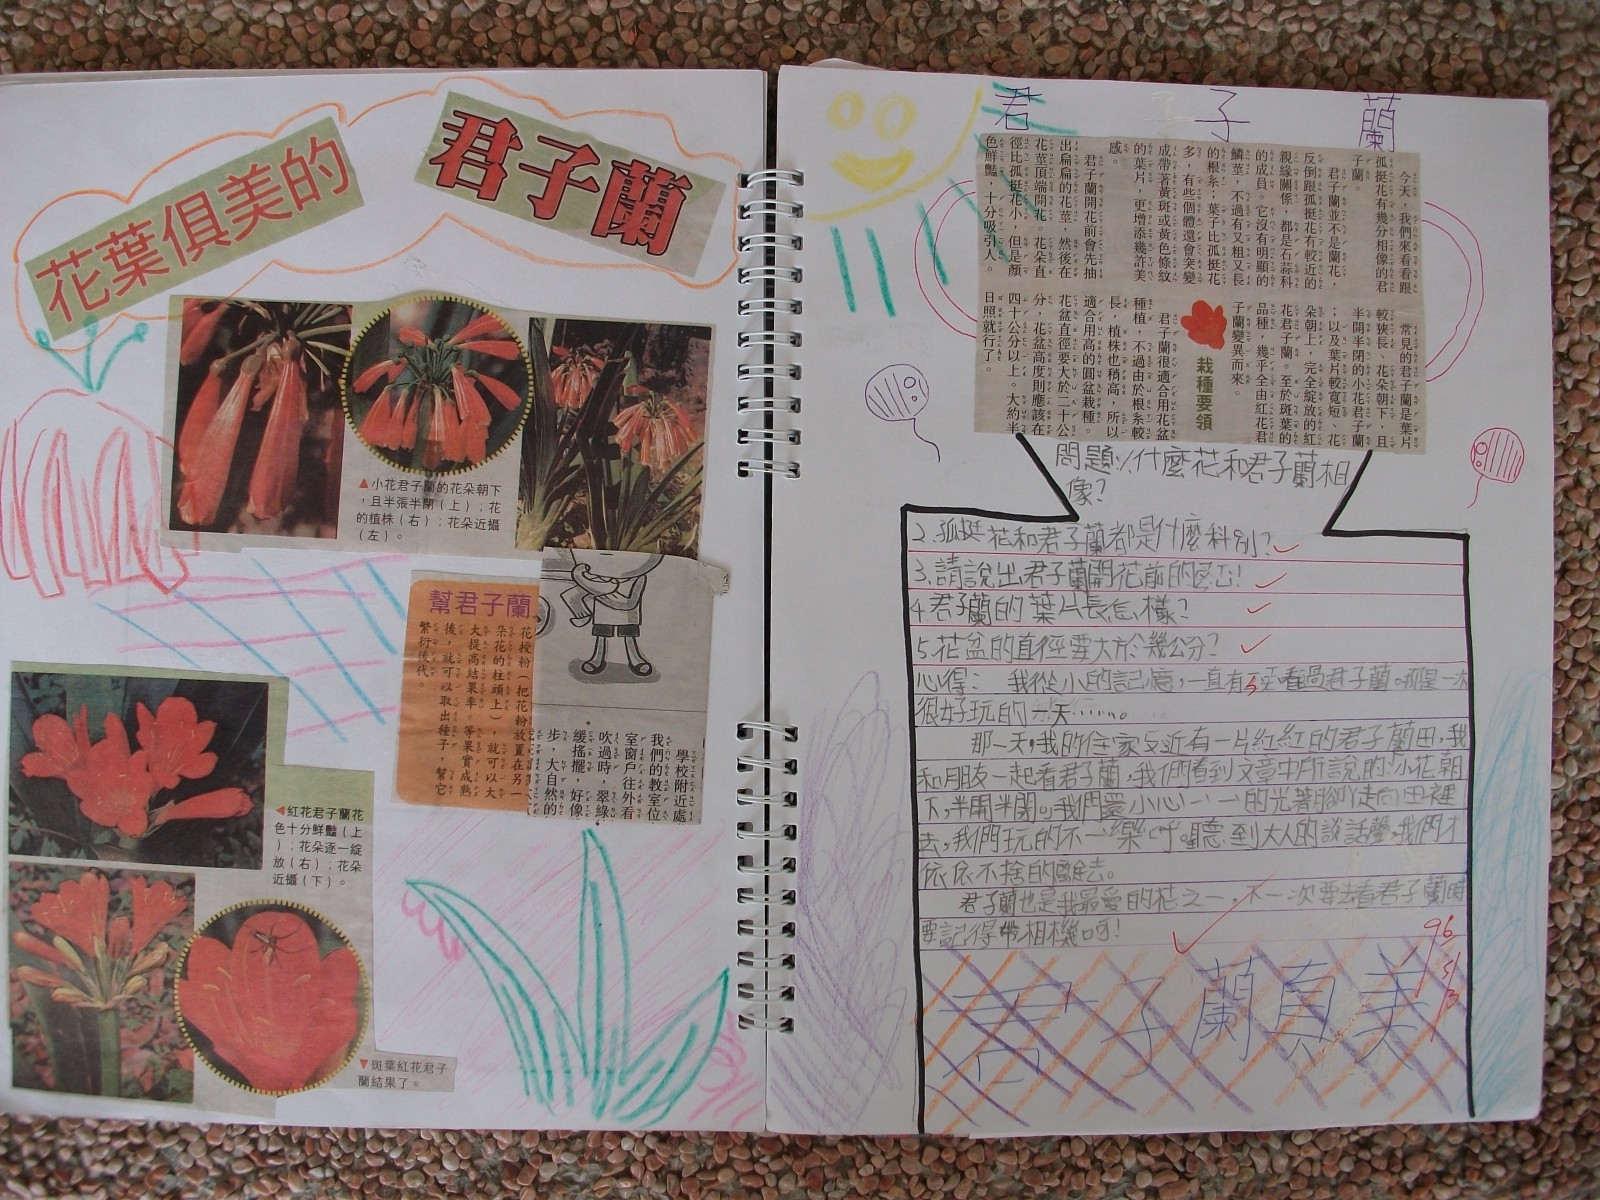 花葉俱美的
君子蘭
▲小花君子蘭的花朵朝下
，且半張半閉（上）；花
的植株（右）；花朵近攝
（左）。
幫君子蘭
花授粉（把花粉放置在另一
朵花的柱頭上），就可以大
大提高結果率。等果實成熟
後，就可以取出種子，幫它
繁衍後代。
學校附近處
我們的教室位
室窗戶往外看
吹過時，翠綠
緩搖擺，好像
步，大自然的
◀紅花君子蘭花
色十分鮮豔（上
）；花朵逐一綻
放（右）；花朵
近攝（下）。
▼斑葉紅花君子
蘭結果了。
君子蘭
今天，我們來看看跟
孤挺花有幾分相像的君
子蘭。
君子蘭並不是蘭花，
反倒跟孤挺花有較近的
親緣關係，都是石蒜科
的成員。它沒有明顯的
鱗莖，不過有又粗又長
的根系；葉子比孤挺花
多，有些個體還會突變
成帶著黃斑或黃色條紋
的葉片，更增添幾許美
感。
君子蘭開花前會先抽
出扁扁的花莖，然後在
花莖頂端開花。花朵直
徑比孤挺花小，但是顏
色鮮豔，十分吸引人。
常見的君子蘭是葉片
較狹長、花朵朝下，且
半開半閉的小花君子蘭
；以及葉片較寬短、花
朵朝上，完全綻放的紅
花君子蘭。至於斑葉的
品種，幾乎全由紅花君
子蘭變異而來。
栽種要領
君子蘭很適合用花盆
種植，不過由於根系較
長，植株也稍高，所以
適合用高的圓盆栽種。
花盆直徑要大於二十公
分，花盆高度則應該在
四十公分以上。大約半
日照就行了。
問題：1.什麼花和君子蘭相
像？
2.孤挺花和君子蘭都是什麼科別？
3.請說出君子蘭開花前的
4.君子蘭的葉片長怎樣？
5.花盆的直徑要大於幾公分？
心得：我從小的記憶，一直有 看過君子蘭。那是一次
很好玩的一天……。
那一天，我的住家附近有一片紅紅的君子蘭田，我
和朋友一起看君子蘭，我們看到文章中所說的小花朝
下，半開半閉。我們還小心一一的光著腳ㄚ走向田裡
去，我們玩的不一樂呼。聽到大人的談話聲，我們才
依依不捨的離去。
君子蘭也是我最愛的花之一，下一次要去看君子蘭時
要記得帶相機呵！
96
5/3
君子蘭真美